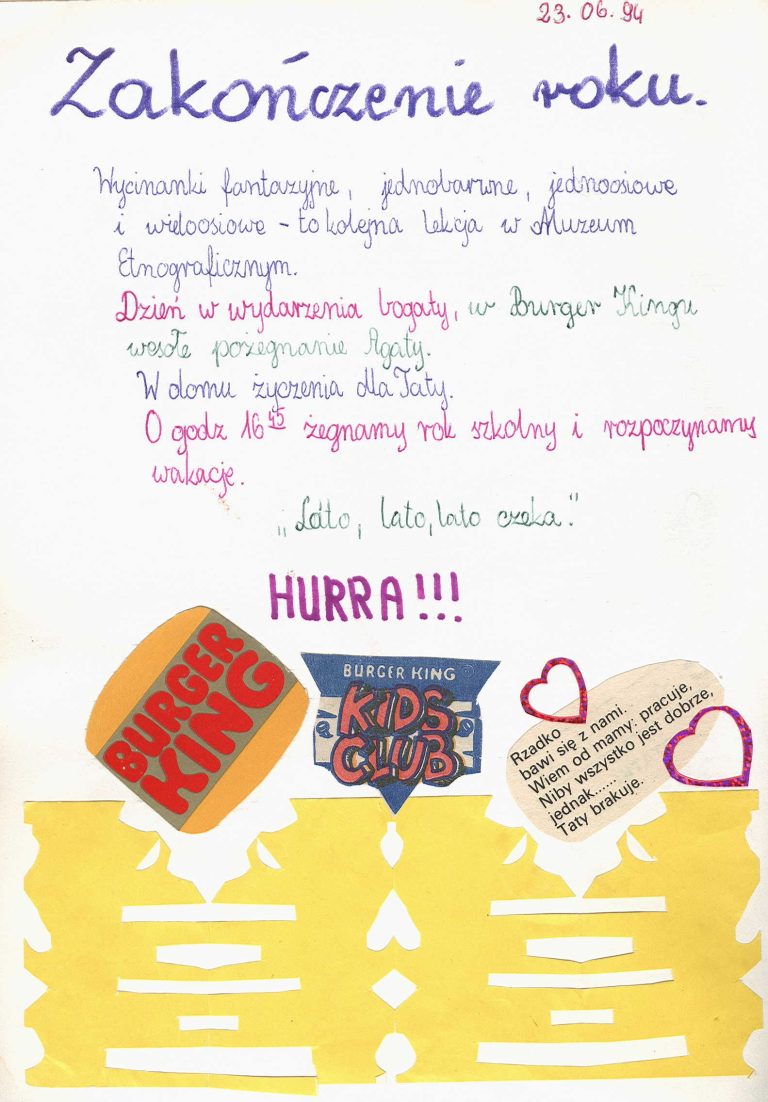 23.06.94
Zakończenie roku.
Wycinanki fantazyjne, jednobarwne, jednoosiowe
i wieloosiowe - to kolejna lekcja w Muzeum
Etnograficznym.
Dzień w wydarzenia bogaty, w Burger Kingu
wesołe pożegnanie Agaty.
W domu życzenia dla Taty.
O godz 16 45 żegnamy rok szkolny i rozpoczynamy
wakacje.
„Lato, lato, lato czeka."
HURRA!!!
BURGER
KING
BURGER KING
KIDS
CLUB
Rzadko
bawi się z nami.
Wiem od mamy: pracuje,
Niby wszystko jest dobrze,
jednak......
Taty brakuje.